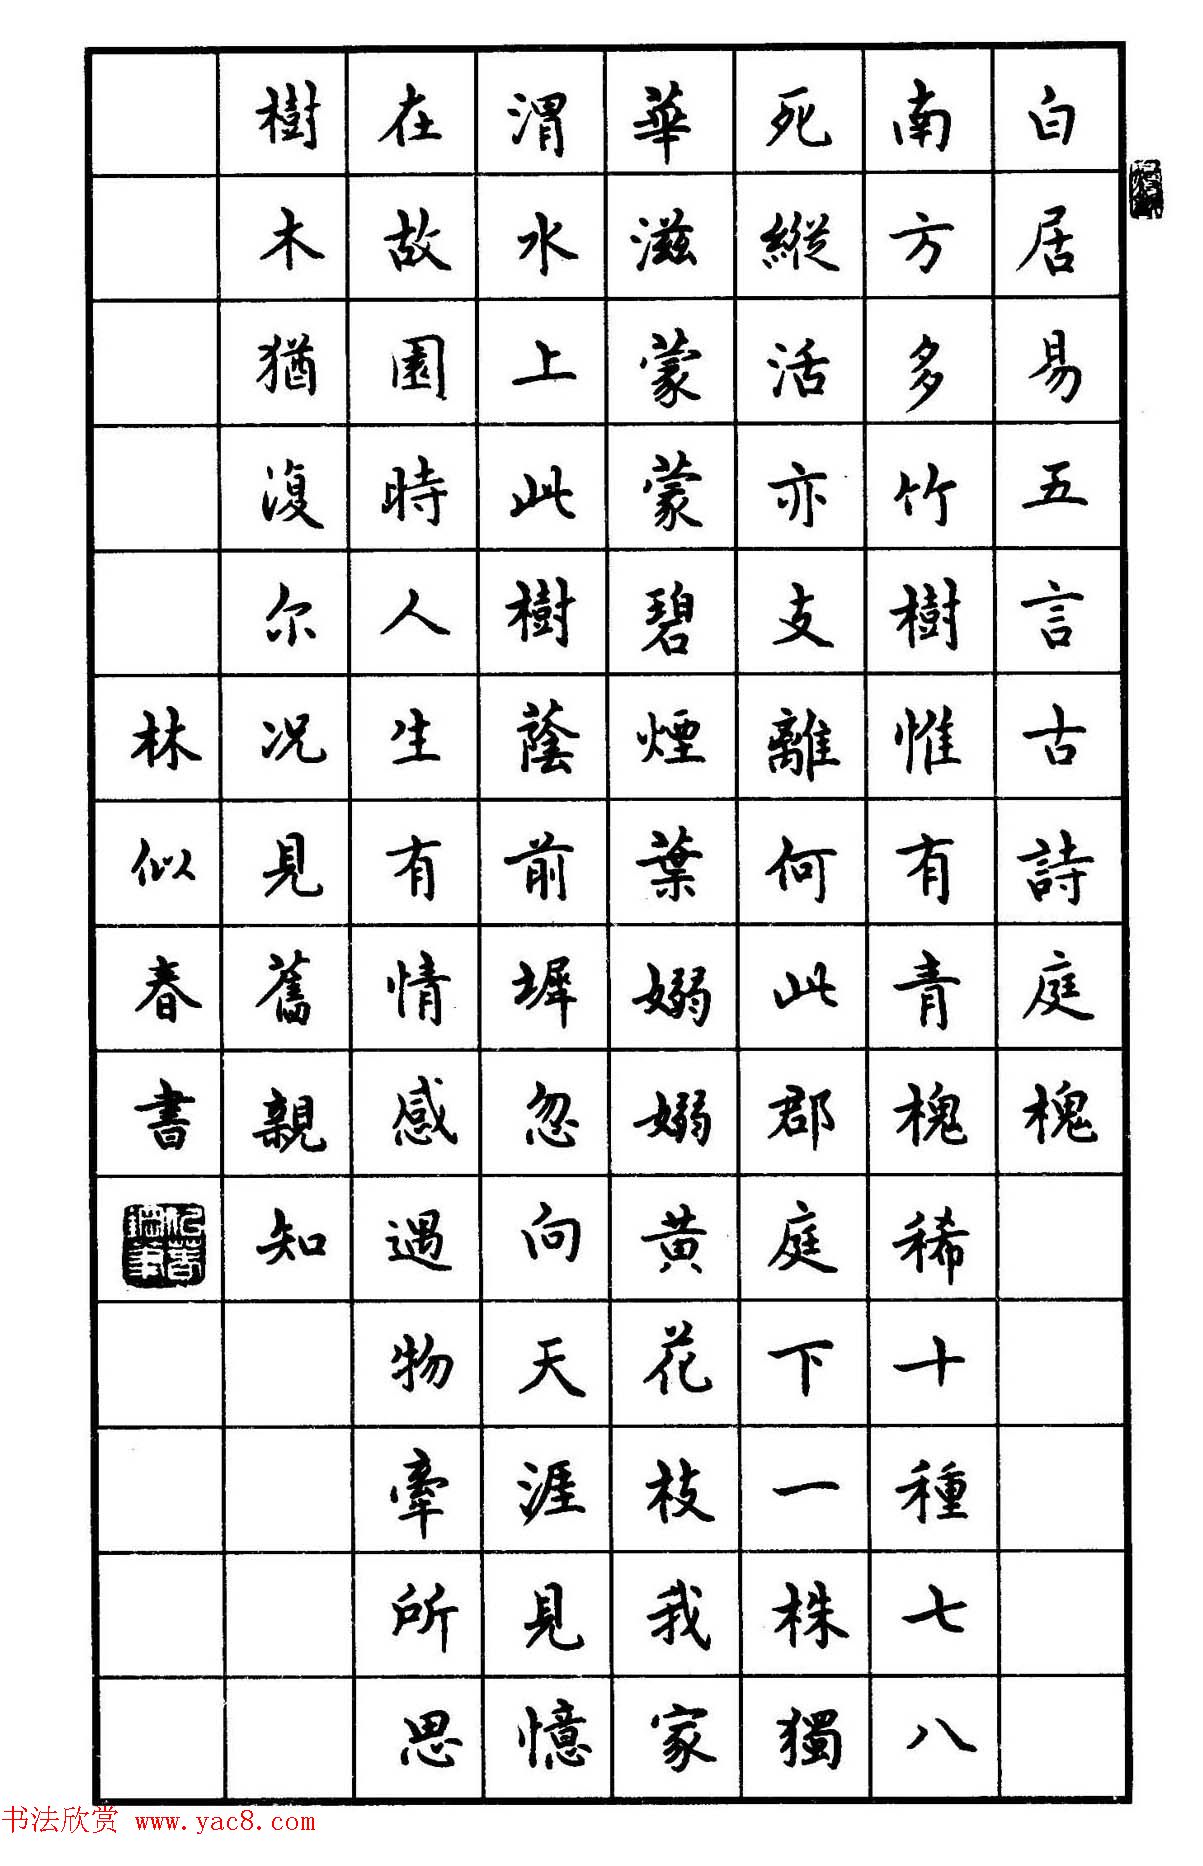 白居易五言古詩庭槐
南方多竹樹惟有青槐稀十種七八
死縱活亦支離何此郡庭下一株獨
華滋蒙蒙碧煙葉嫋嫋黃花枝我家
渭水上此樹蔭前墀忽向天涯見憶
在故園時人生有情感遇物牽所思
樹木猶復尔况見舊親知
林似春書
书法欣赏 www.yac8.com